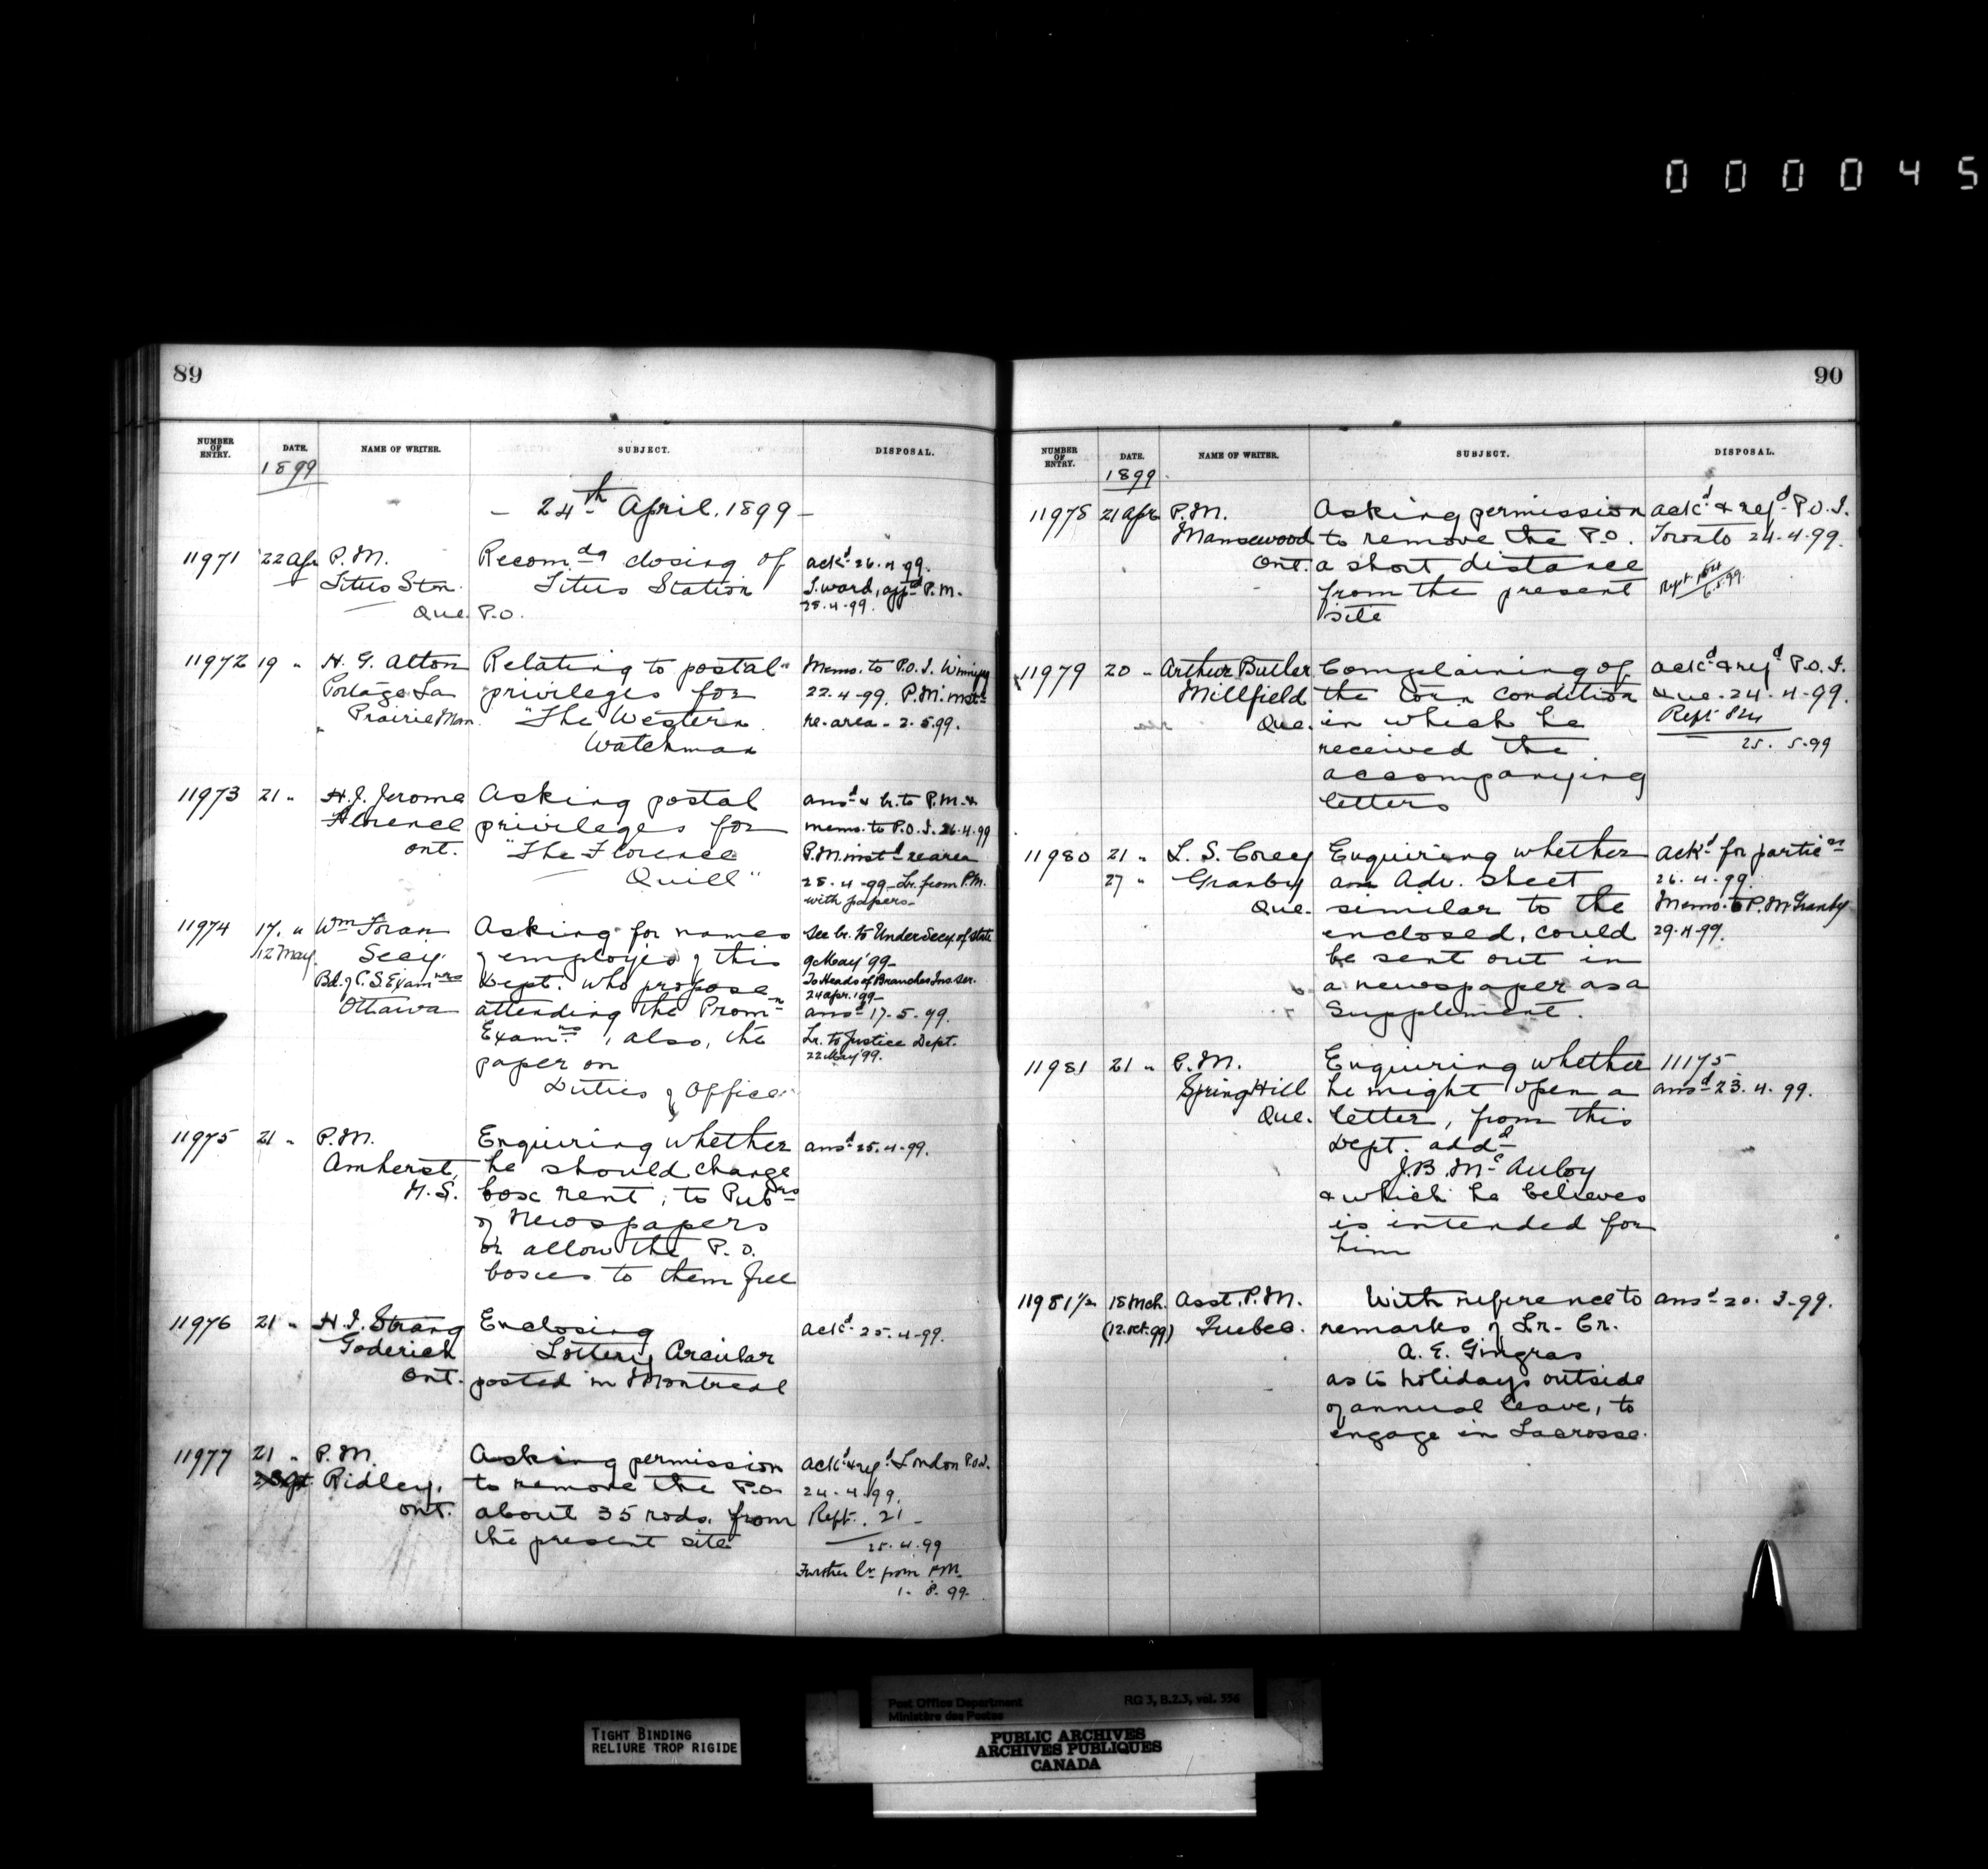 000045
89
NUMBER OF ENTRY. DATE. NAME OF WRITER. SUBJECT. DISPOSAL.
1899
- 24th April. 1899 -
11971 22 Apr P.M. Recomdg closing of ackd 26.4.99.
Titus Stn. Titus Station S. Ward, appd P.M.
Que. P.O. 28.4.99.
11972 19 " H. G. Alton Relating to postal Memo. to P.O.I. Winnipg
Portage La privileges for 22.4.99. P.M. instd
Prairie Man. "The Western re. area - 2.5.99.
Watchman
11973 21 " H.J. Jerome Asking postal ansd & lr. to P.M. &
Florence privileges for memo. to P.O.I. 26.4.99
Ont. "The Florence P.M. instd re area
Quill" 28.4.99 - Lr. from P.M.
with papers -
11974 17. " Wm Foran Asking for names See lr. to Under Secy. of State
12 May. Secy. of employés of this 9 May '99 -
Bd. of C.S. Examiners Dept. who propose To Heads of Branches Ins. Ser.
24 Apr. '99 -
Ottawa attending the Promn ansd 17.5.99.
Examns, also, the Lr. to Justice Dept.
paper on 22 May '99.
Duties of Office
11975 21 " P.M. Enquiring whether ansd 25.4.99.
Amherst, he should charge
N.S. box rent, to Pubrs
of Newspapers
or allow the P.O.
boxes to them free
11976 21 " H.I. Strang Enclosing ackd 25.4.99.
Goderich Lottery Circular
Ont. posted in Montreal
11977 21 " P.M. Asking permission ackd & refd London P.O.I.
Ridley, to remove the P.O. 24.4.99.
Ont. about 35 rods, from Rept. 21 -
the present site 25.4.99
Further lr. from P.M.
1. 8. 99.
90
NUMBER OF ENTRY. DATE. NAME OF WRITER. SUBJECT. DISPOSAL.
1899.
11978 21 Apr P.M. Asking permission ackd & refd P.O.I.
Mansewood to remove the P.O. Toronto 24.4.99.
Ont. a short distance Rept.
from the present
site
11979 20 " Arthur Butler Complaining of ackd & refd P.O.I.
Millfield the torn condition Que. 24.4.99.
Que. in which he Rept 824
received the 25. 5.99
accompanying
letters
11980 21 " L. S. Corey Enquiring whether ackd for particrs
27 " Granby an Adv. Sheet 26.4.99.
Que. similar to the Memo. to P.M. Granby
enclosed, could 29.4.99.
be sent out in
a newspaper as a
Supplement.
11981 21 " P.M. Enquiring whether 11175
Spring Hill he might open a ansd 23.4.99.
Que. letter, from this
Dept. addd
J.B. McAuley
& which he believes
is intended for
him
11981 1/2 18 Mch. Asst. P.M. With reference to ansd 20. 3.99.
(12.Oct.99) Quebec. remarks of Lr. Cr.
A. E. Gingras
as to holidays outside
of annual leave, to
engage in Lacrosse.
TIGHT BINDING
RELIURE TROP RIGIDE
Post Office Department RG 3, B.2.3, vol. 556
Ministère des Postes
PUBLIC ARCHIVES
ARCHIVES PUBLIQUES
CANADA